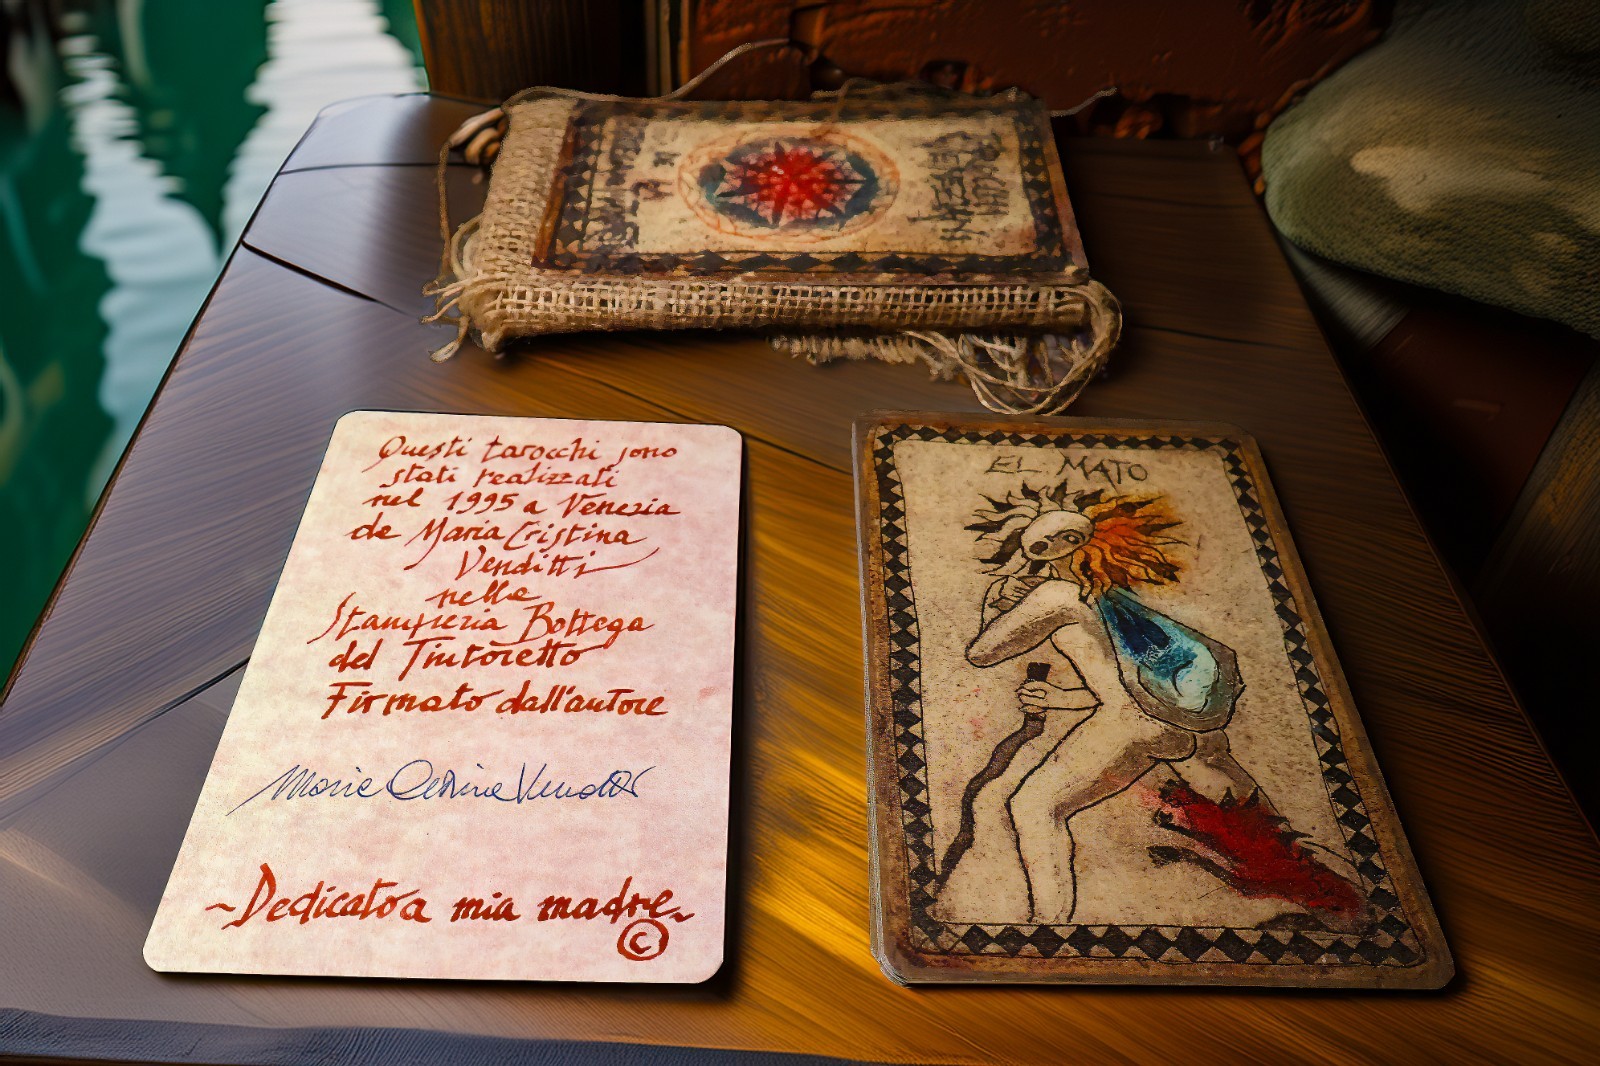 Questi tarocchi sono
stati realizzati
nel 1995 a Venezia
da Maria Cristina
Venditti
nella
Stamperia Bottega
del Tintoretto
Firmato dall'autore
~Dedicato a mia madre~
©
EL MATO